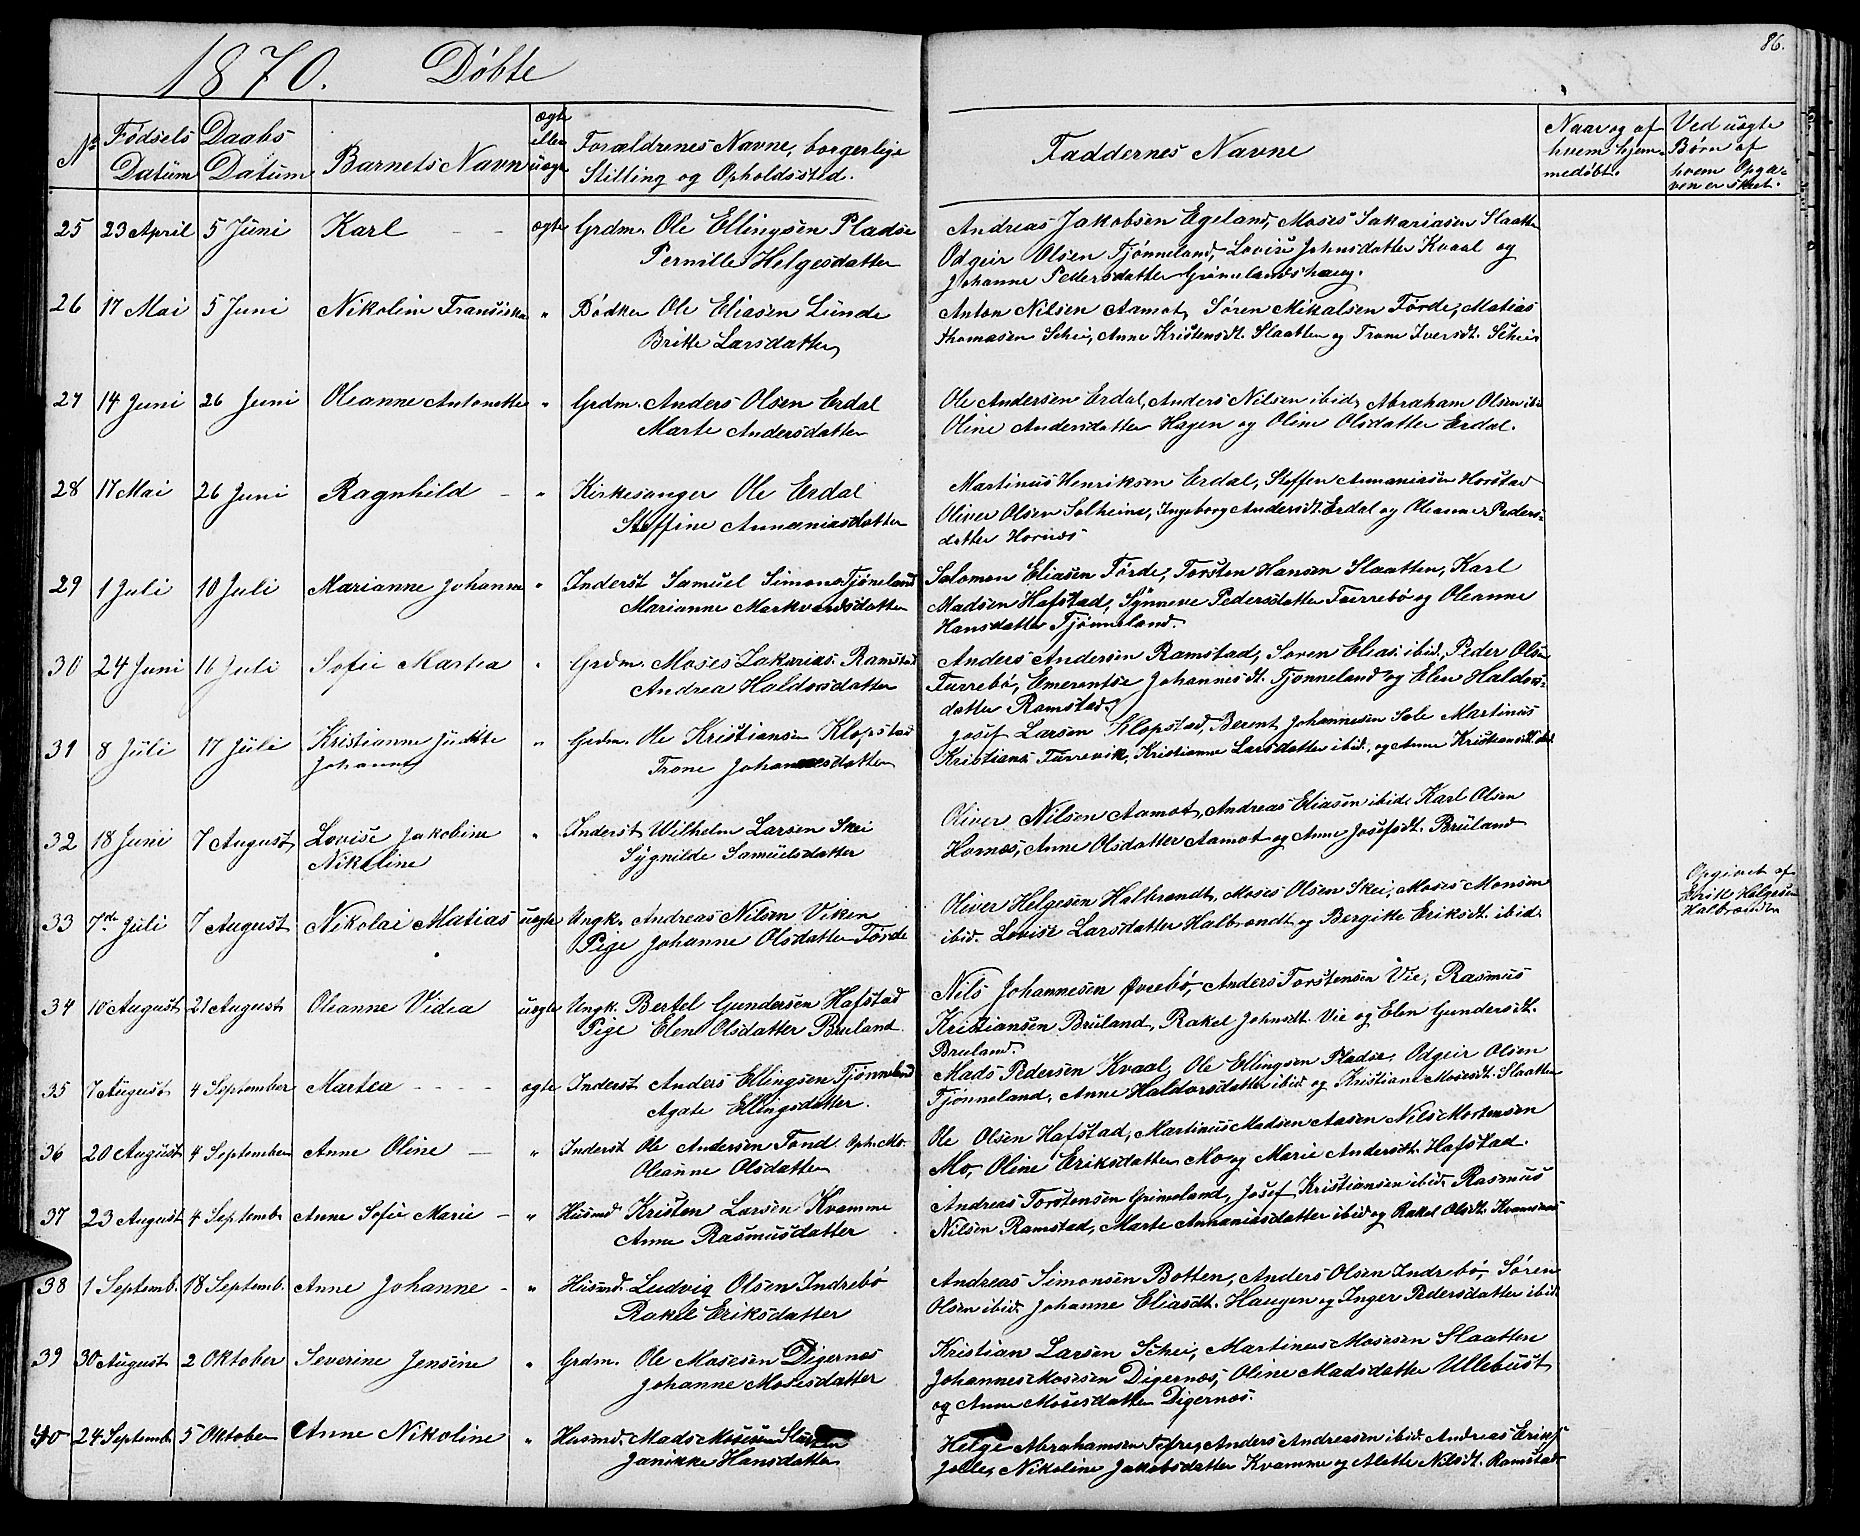 86.
1870. Døbte
No Fødsels Datum
Daabs Datum
Barnets Navn
ægte eller uægte
Forældrenes Navne, borgerlige Stilling og Opholdssted.
Faddernes Navne
Naar og af hvem hjemmedøbt.
Ved uægte Børn af hvem Opgaven er skeet.
25 23 April 5 Juni Karl ægte Grdm. Ole Ellingsen Pladse
Pernille Helgesdatter
Andreas Jakobsen Egeland, Moses Sakariasen Slaatten
Odgeir Olsen Tjønneland, Lovise Johnsdatter Kvaal og
Johanne Pedersdatter Grimelandshaug.
26 17 Mai 5 Juni Nikolin Fransiska " Bødker Ole Eliasen Lunde
Britte Larsdatter
Anton Nilsen Aamot, Søren Mikalsen Førde, Matias
Thomasen Schei, Anne Kristensdt. Slaatten og Trone Iversdt. Schei
27 14 Juni 26 Juni Oleanne Antonette " Grdm. Anders Olsen Erdal
Marte Andersdatter
Ole Andersen Erdal, Anders Nilsen ibid, Abraham Olsen ibi
Oline Andersdatter Hagen og Oline Olsdatter Erdal.
28 17 Mai 26 Juni Ragnhild - " Kirkesanger Ole Erdal
Steffine Annaniasdatter
Martinus Henriksen Erdal, Steffen Annaniasen Horstad
Oliver Olsen Solheim, Ingeborg Andersdt. Erdal og Oleanne Peders-
datter Hornæs
29 1 Juli 10 Juli Marianne Johanne " Inderst Samuel Simons. Tjøneland
Marianne Markvardsdatter
Salomon Eliasen Førde, Torsten Hansen Slaatten, Karl
Madsen Hafstad, Synneve Pedersdatter Furrebø og Oleanne
Hansdatter Tjønneland.
30 24 Juni 16 Juli Sofie Martea " Grdm. Moses Zakarias. Ramstad
Andrea Haldorsdatter
Anders Andersen Ramstad, Søren Elias. ibid. Peder Olsen
Furrebø, Emerentse Johannesdt. Tjønneland og Elen Haldors-
datter Ramstad.
31 8 Juli 17 Juli Kristianne Juditte
Johanne
" Grdm. Ole Kristiansen Klopstad
Trone Johannesdatter
Josef Larsen Klopstad, Berent Johannesen Sole Martinus
Kristians. Furrevik, Kristianne Larsdatter ibid. og Anne Kristiansdt. ibid
32 18 Juni 7 August Lovise Jakobine
Nikoline
" Inderst Wilhelm Larsen Skei
Sygnilde Samuelsdatter
Oliver Nilsen Aamot, Andreas Eliasen ibid. Karl Olsen
Hornæs, Anne Olsdatter Aamot og Anne Josefsdt. Bruland
33 7de Juli 7 August Nikolai Matias uægte Ungk. Andreas Nilsen Viken
Pige Johanne Olsdatter Førde
Oliver Helgesen Halbrendt, Moses Olsen Skei, Moses Monsen
ibid. Lovise Larsdatter Halbrendt og Bergitte Eriksdt. ibid.
Opgivet af
Helgesen
34 10 August 21 August Oleanne Videa uægte Ungk. Bertel Gundersen Hafstad
Pige Elen Olsdatter Bruland.
Nils Johannesen Øvrebø, Anders Torstensen Vie, Rasmus
Kristiansen Bruland, Rakel Johnsdt. Vie og Elen Gundersdt.
Bruland.
35 7 August 4 September Martea - - - ægte Inderst Anders Ellingsen Tjønneland
Agate Ellingsdatter.
Mads Pedersen Kvaal, Ole Ellingsen Pladse, Odgeir Olsen
Tjønneland, Anne Haldorsdatter ibid og Kristiane Mosesdt. Slaatten
36 20 August 4 September Anne Oline - " Inderst Ole Andersen Fond Oph. Mo.
Oleanne Olsdatter
Ole Olsen Hafstad, Martinus Madsen Aasen Nils Mortensen
Mo, Oline Eriksdatter Mo og Marie Andersdt. Hafstad.
37 23 August 4 Septemb. Anne Sofie Marie - " Husmd. Kristen Larsen Kvamme
Anne Rasmusdatter
Andreas Torstensen Grimeland, Josef Kristiansen ibid. Rasmus
Nilsen Ramstad, Marte Annaniasdatter ibid og Rakel Olsdt. Kvamme
38 1 Septemb. 18 Septemb. Anne Johanne - " Husmd. Ludvig Olsen Indrebø
Rakel Eriksdatter
Andreas Simonsen Botten, Anders Olsen Indrebø, Søren
Olsen ibid. Johanne Eliasdt. Haugen og Inger Pedersdatter ibid
39 30 August 2 Oktober Severine Jensine " Grdm. Ole Mosesen Digernæs
Johanne Mosesdatter
Kristian Larsen Schei, Martinus Mosesen Slaatten
Johannes Mosesen Digernæs, Oline Madsdatter Ullebust
og Anne Mosesdatter Digernæs.
40 24 Septemb 5 Oktober Anne Nikoline " Husmd. Mads Mosesen Slatten
Janikke Hansdatter
Helge Abrahamsen Anders Andreasen ibid. Andreas Eriks.
Nikoline Jakobsdatter Kvamme og Alette Nilsdt. Ramstad